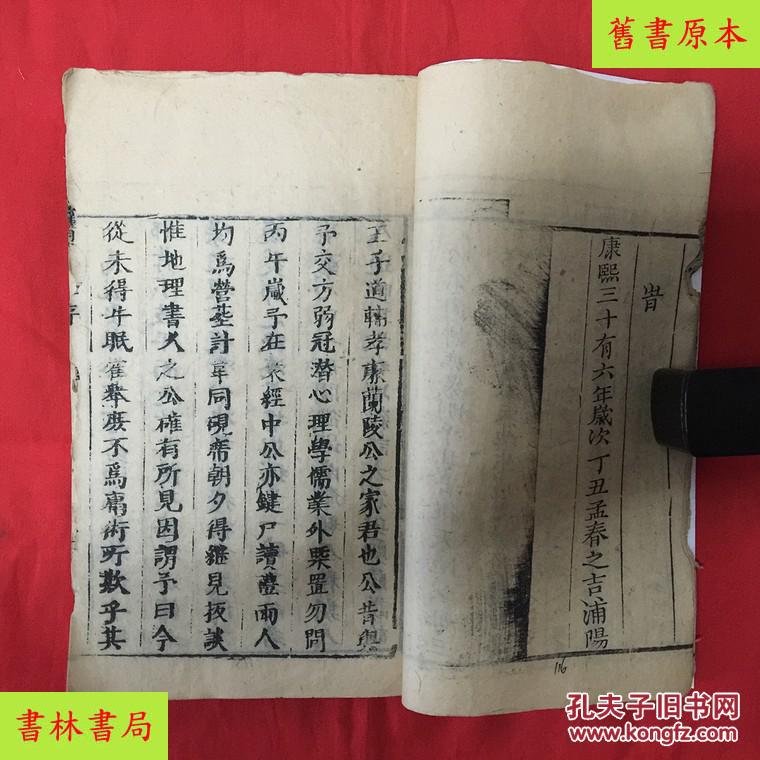 舊書原本
旹
康熙三十有六年歲次丁丑孟春之吉浦陽
王子道輔孝廉蘭陵公之家君也公昔與
予交方弱冠潛心理學儒業外槩置勿問
丙午歲予在衰絰中公亦鍵戶讀禮兩人
均為營塟計輩同硯席朝夕得繼見抜談
惟地理書人之公確有所見因謂予曰今
從未得牛眠舊舉庻不爲庸術所欺乎其
序
116
書林書局
孔夫子旧书网
www.kongfz.com